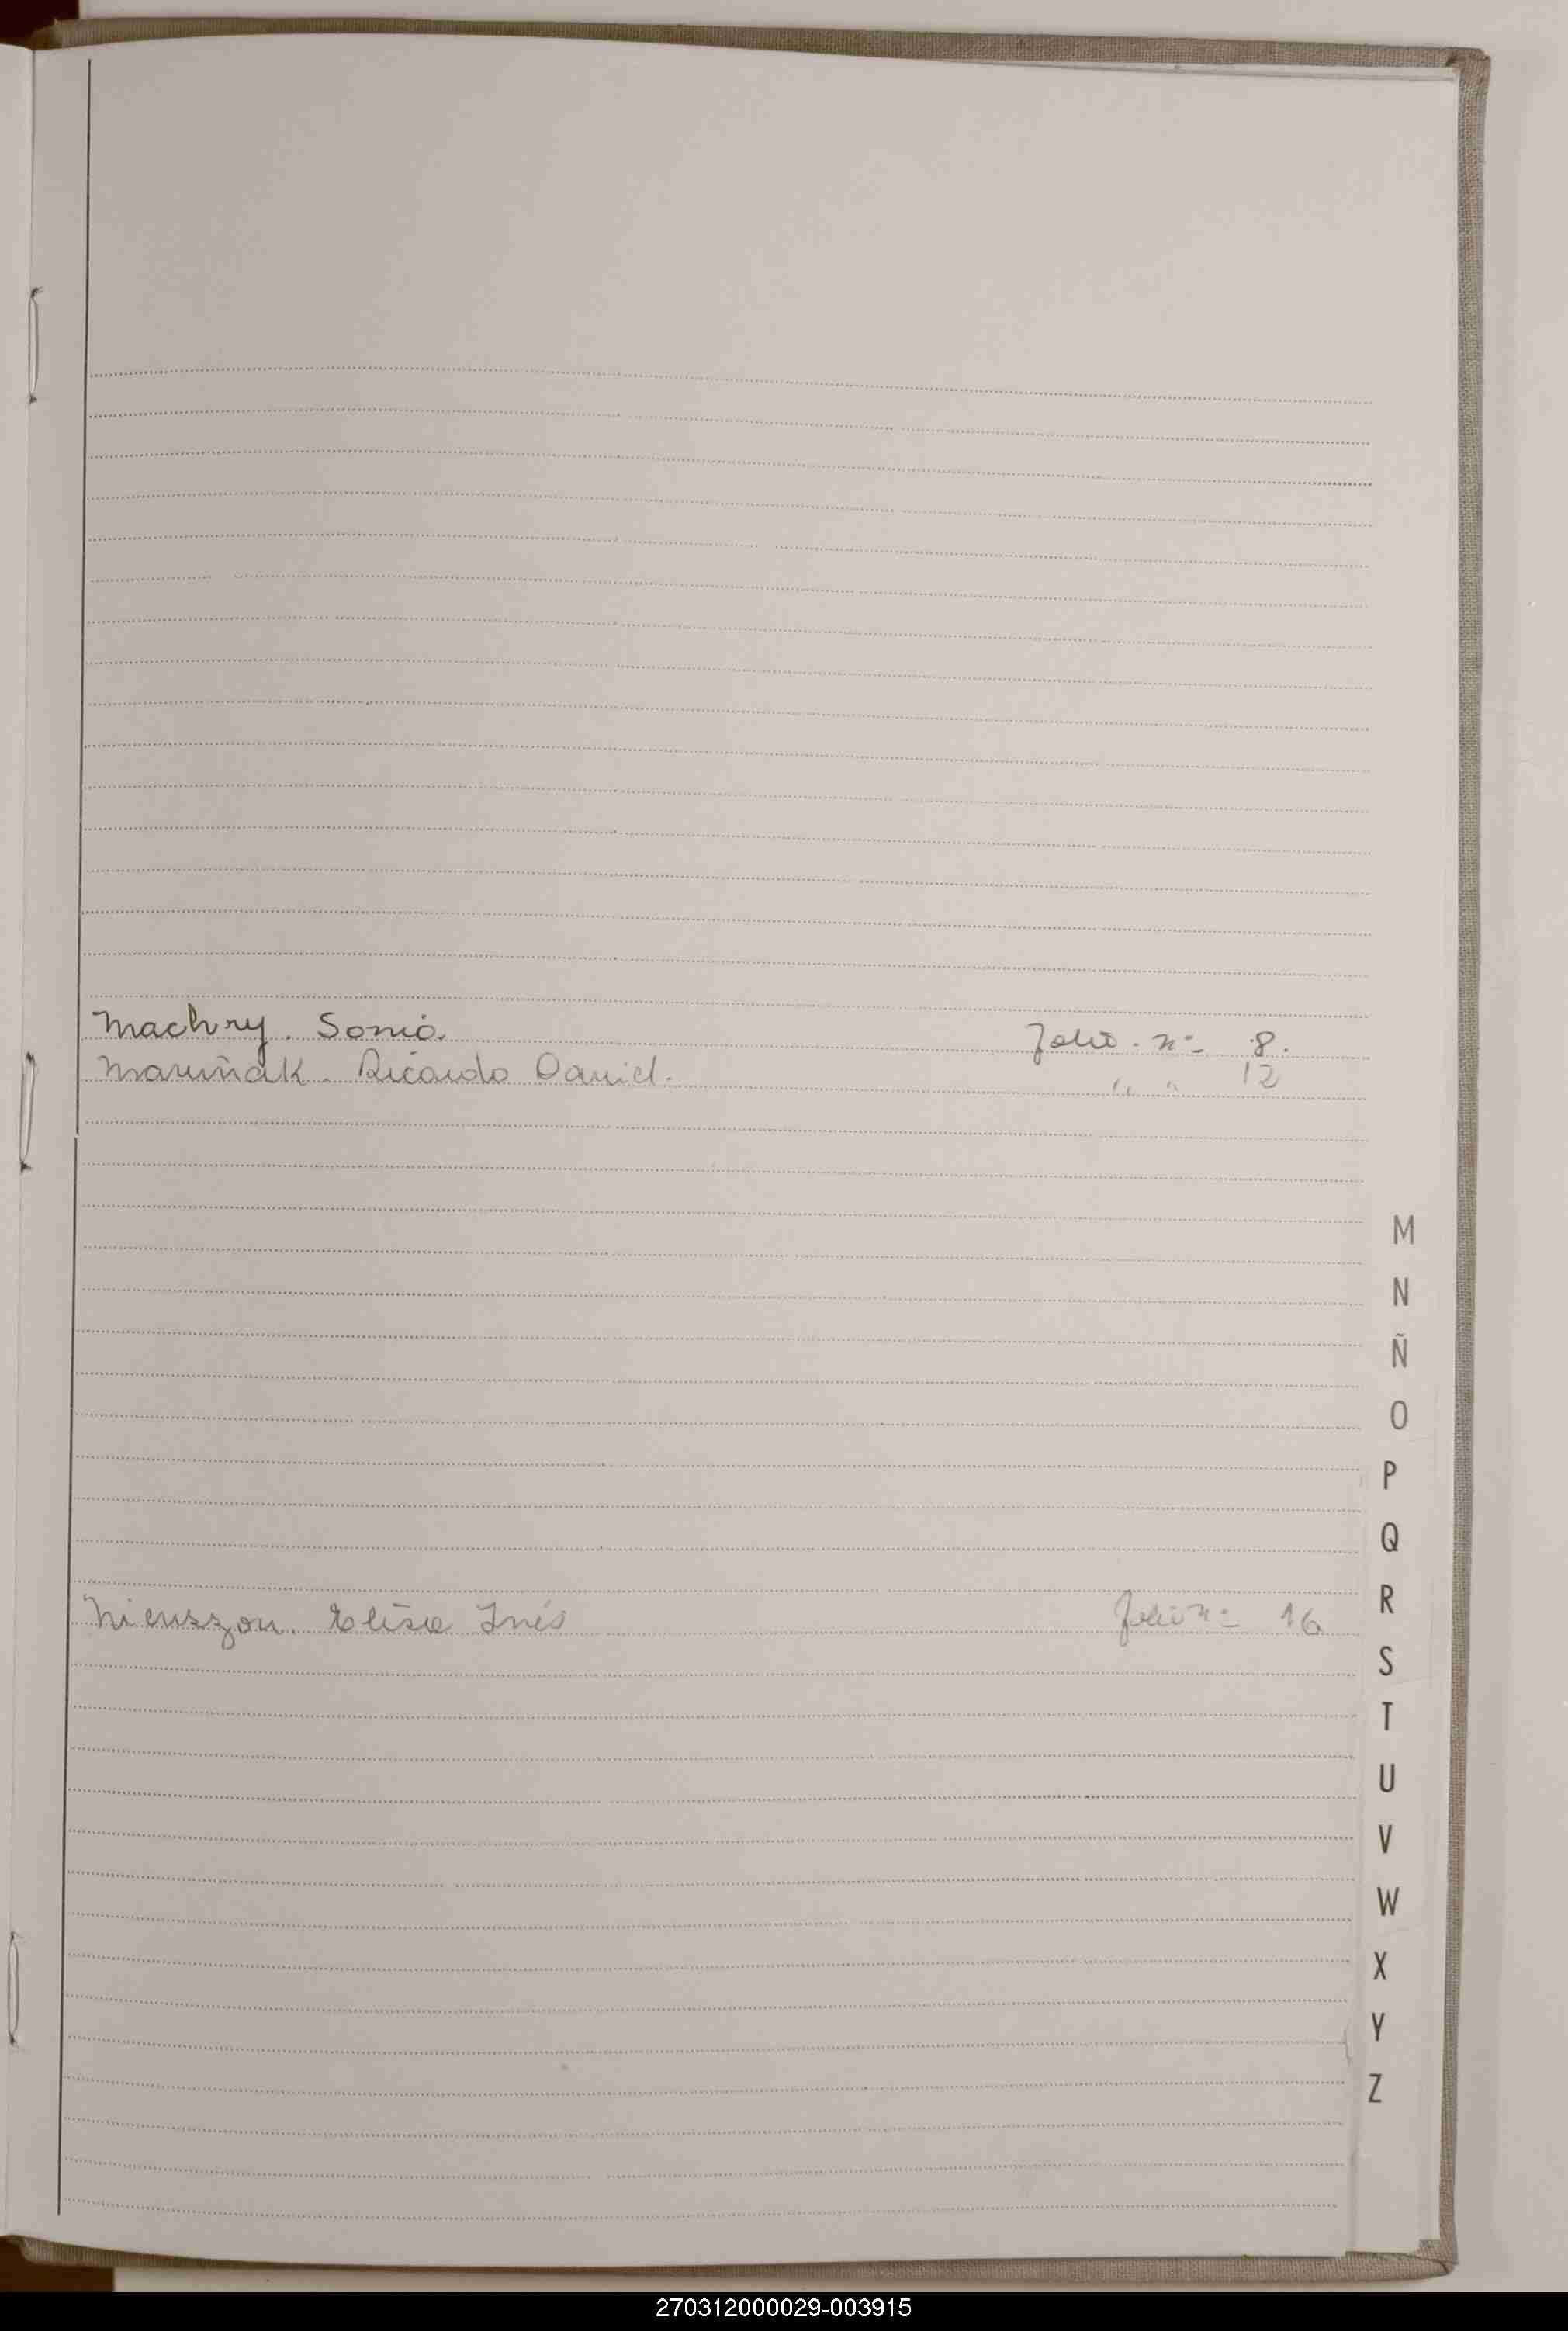 Machry. Sonia. Folio. nº 8.
Maruñak. Ricardo Daniel. " " 12
M
N
Ñ
O
P
Q
R
Elisa Inés Folio nº 16
S
T
U
V
W
X
Y
Z
270312000029-003915